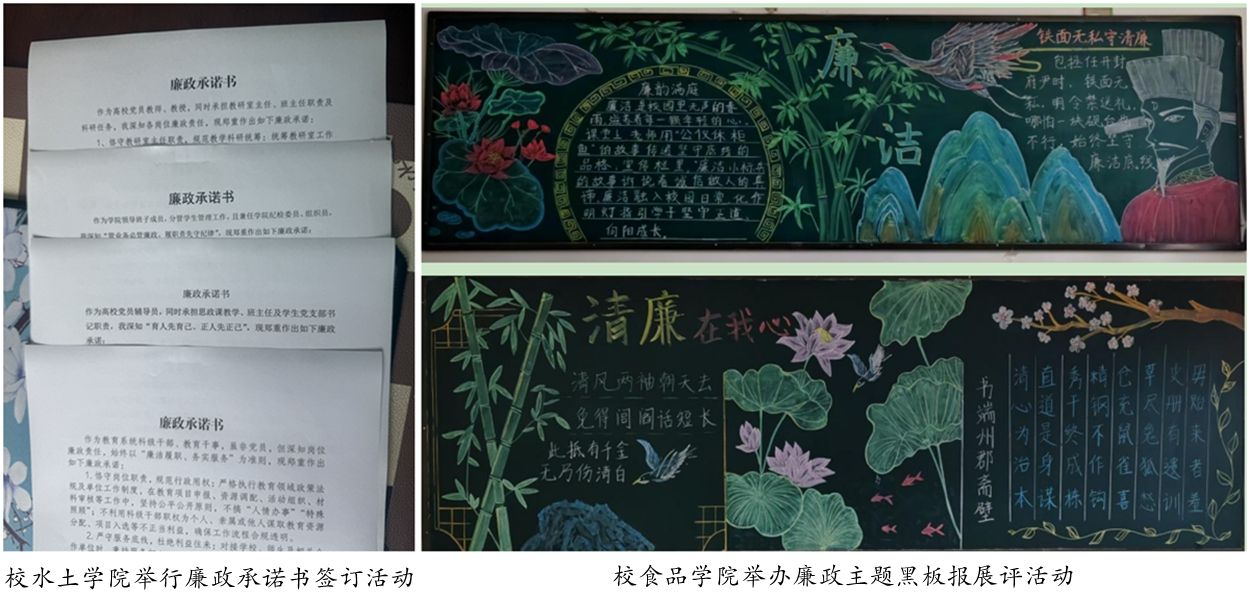 廉政承诺书
作为高校党员教师、教授，同时承担教研室主任、班主任职责及
科研任务，我深知各岗位廉政责任，现郑重作出如下廉政承诺：
1、恪守教研室主任职责，规范教学科研统筹：统筹教研室工作
廉政承诺书
作为学院领导班子成员，分管学生管理工作，且兼任学院纪检委员、组织员，
我深知“管业务必管廉政、履职责先守纪律”，现郑重作出如下廉政承诺：
廉政承诺书
作为高校党员辅导员，同时承担思政课教学、班主任及学生党支部书
记职责，我深知“育人先育己、正人先正己”，现郑重作出如下廉政
承诺：
廉政承诺书
作为教育系统科级干部、教育干事，虽非党员，但深知岗位
廉政责任，始终以“廉洁履职、务实服务”为准则，现郑重作出
如下廉政承诺：
1. 恪守岗位职责，规范行政用权：严格执行教育领域政策法
规及单位工作制度，在教育项目申报、资源调配、活动组织、材
料审核等工作中，坚持公平公开原则，不搞“人情办事”“特殊
照顾”；不利用科级干部职权为个人、亲属或他人谋取教育资源
分配、项目入选等不正当利益，确保工作流程合规透明。
2. 严守服务底线，杜绝利益往来：对接学校、师生及相关合
廉洁
廉韵满庭
廉洁是校园里无声的春
雨，滋养着每一颗年轻的心。
课堂上，老师用“公仪休拒
鱼”的故事传递坚守底线的
品格，宣传栏里，“廉洁小标兵
的故事诉说着诚信做人的真
谛，廉洁融入校园日常，化作
明灯指引学子坚守正道，
向阳成长。
铁面无私守清廉
包拯任开封
府尹时，铁面无
私，明令禁送礼，
哪怕一块砚台也
不行，始终坚守
廉洁底线
清廉在我心
清风两袖朝天去
免得闾阎话短长
此抵有千金
无乃伤清白
书端州郡斋壁
清心为治本
直道是身谋
秀干终成栋
精钢不作钩
仓充鼠雀喜
草尽兔狐愁
史册有遗训
毋贻来者羞
校水土学院举行廉政承诺书签订活动
校食品学院举办廉政主题黑板报展评活动